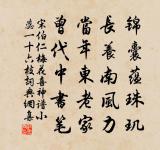 錦囊蘊珠玑
長養南風力
當年東老家
曾代中書筆
宋伯仁梅花喜神谱小
蕊一十六枝詞典網喜